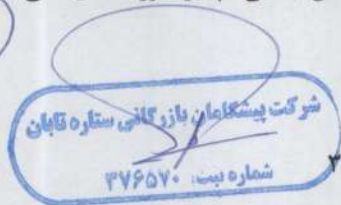 شرکت پیشگامان بازرگانی ستاره تابان
شماره ثبت: ۳۷۶۵۷۰
۳